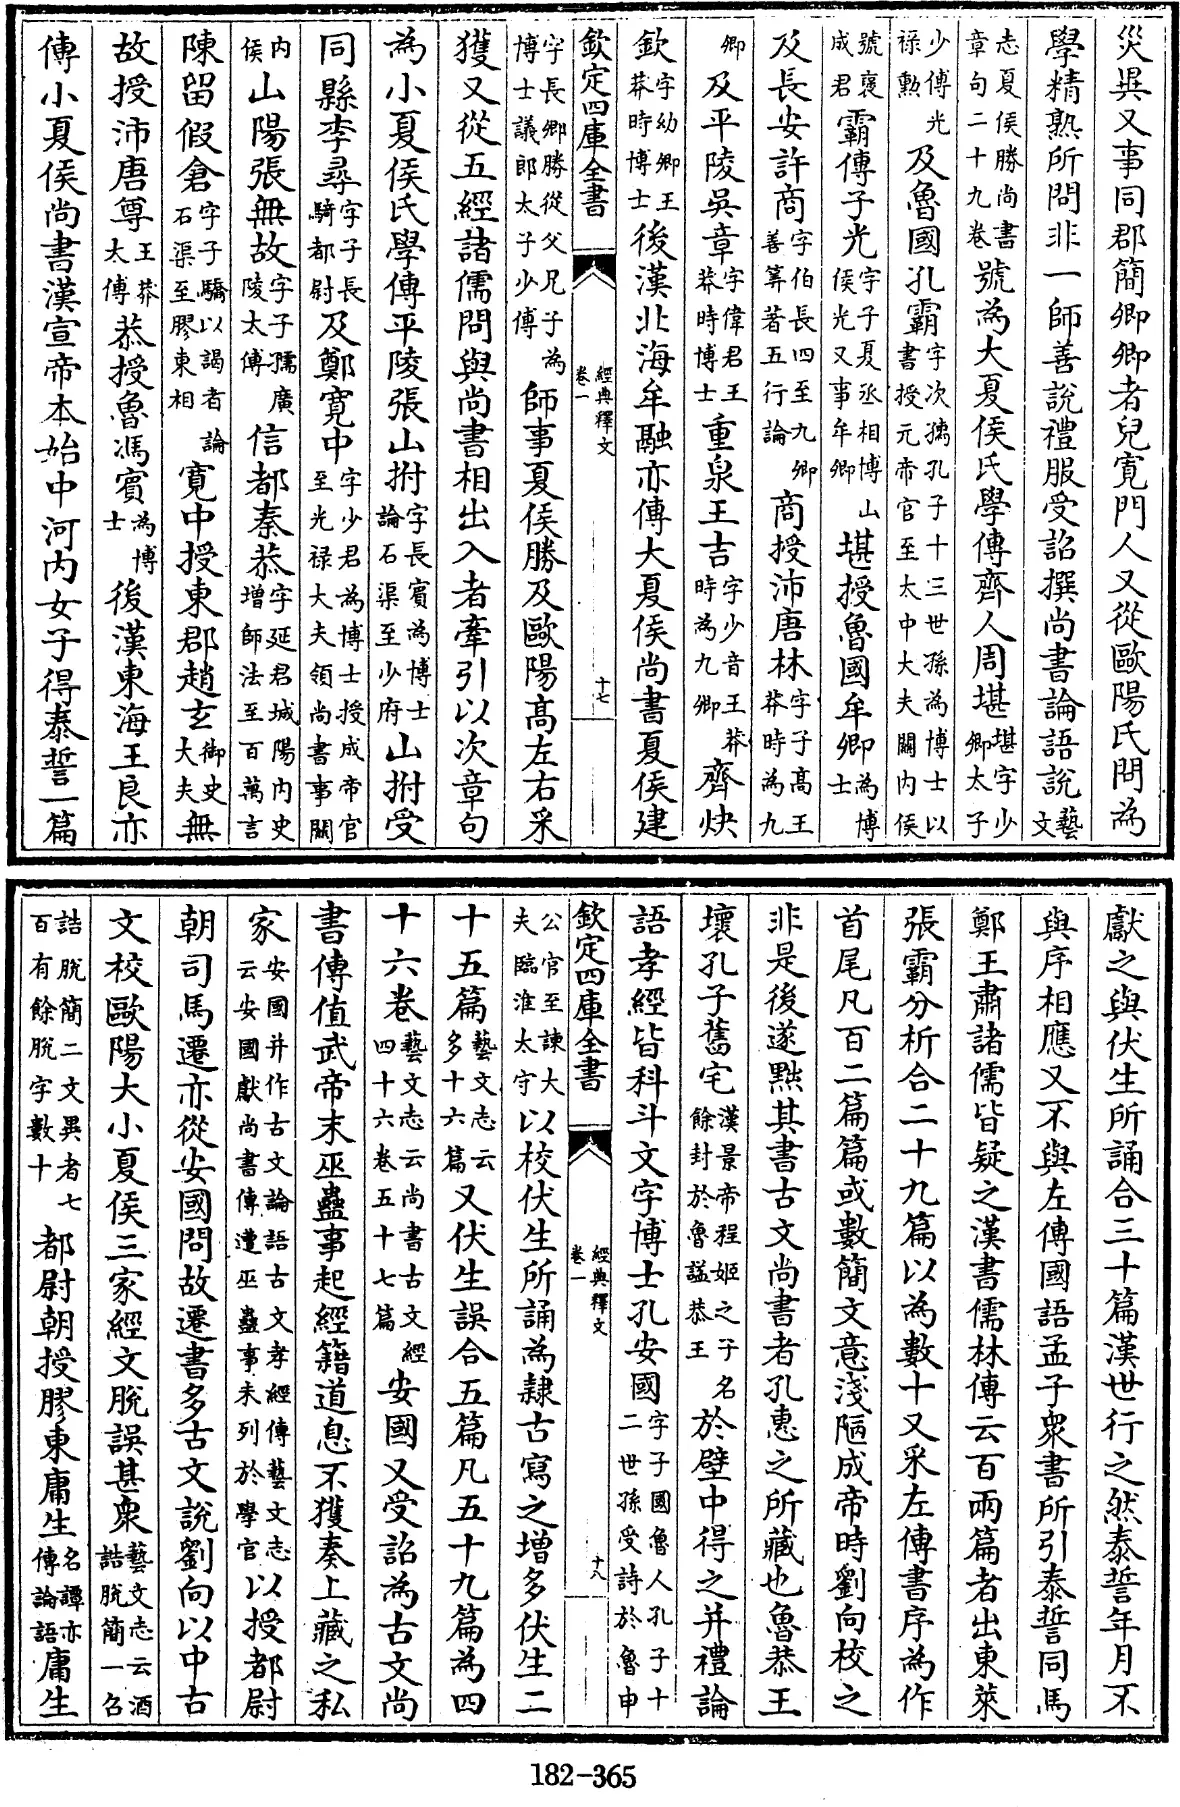 災異又事同郡簡卿卿者兒寛門人又從歐陽氏問為
學精熟所問非一師善說禮服受詔撰尚書論語說藝文
志夏侯勝尚書章句二十九卷號為大夏侯氏學傳齊人周堪堪字少卿太子
少傅光祿勳及魯國孔霸字次孺孔子十三世孫為博士以書授元帝官至太中大夫關内侯
號襃成君霸傳子光字子夏丞相博山侯光又事牟卿堪授魯國牟卿為博士
及長安許商字伯長四至九卿善筭著五行論商授沛唐林字子髙王莽時為九
卿及平陵吳章字偉君王莽時博士重泉王吉字少音王莽時為九卿齊炔
欽字幼卿王莽時博士後漢北海牟融亦傳大夏侯尚書夏侯建
欽定四庫全書 經典釋文 卷一 十七
字長卿勝從父兄子為博士議郎太子少傅師事夏侯勝及歐陽髙左右采
獲又從五經諸儒問與尚書相出入者牽引以次章句
為小夏侯氏學傳平陵張山拊字長賓為博士論石渠至少府山拊受
同縣李尋字子長騎都尉及鄭寛中字少君為博士授成帝官至光禄大夫領尚書事關
内侯山陽張無故字子孺廣陵太傅信都秦恭字延君城陽内史增師法至百萬言
陳留假倉字子驕以謁者論石渠至膠東相寛中授東郡趙玄御史大夫無
故授沛唐尊王莽太傅恭授魯馮賓為博士後漢東海王良亦
傳小夏侯尚書漢宣帝本始中河内女子得泰誓一篇
獻之與伏生所誦合三十篇漢世行之然泰誓年月不
與序相應又不與左傳國語孟子衆書所引泰誓同馬
鄭王肅諸儒皆疑之漢書儒林傳云百兩篇者出東萊
張霸分析合二十九篇以為數十又采左傳書序為作
首尾凡百二篇篇或數簡文意淺陋成帝時劉向校之
非是後遂黜其書古文尚書者孔惠之所藏也魯恭王
壊孔子舊宅漢景帝程姬之子名餘封於魯諡恭王於壁中得之并禮論
語孝經皆科斗文字博士孔安國字子國魯人孔子十二世孫受詩於魯申
欽定四庫全書 經典釋文 卷一 十八
公官至諫大夫臨淮太守以校伏生所誦為隸古寫之增多伏生二
十五篇藝文志云多十六篇又伏生誤合五篇凡五十九篇為四
十六卷藝文志云尚書古文經四十六卷五十七篇安國又受詔為古文尚
書傳值武帝末巫蠱事起經籍道息不獲奏上藏之私
家安國并作古文論語古文孝經傳藝文志云安國獻尚書傳遭巫蠱事未列於學官以授都尉
朝司馬遷亦從安國問故遷書多古文說劉向以中古
文校歐陽大小夏侯三家經文脫誤甚衆藝文志云酒誥脫簡一召
誥脫簡二文異者七百有餘脫字數十都尉朝授膠東庸生名譚亦傳論語庸生
182-365